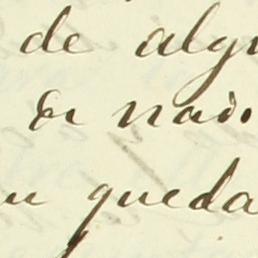 de algu
en nad
u queda